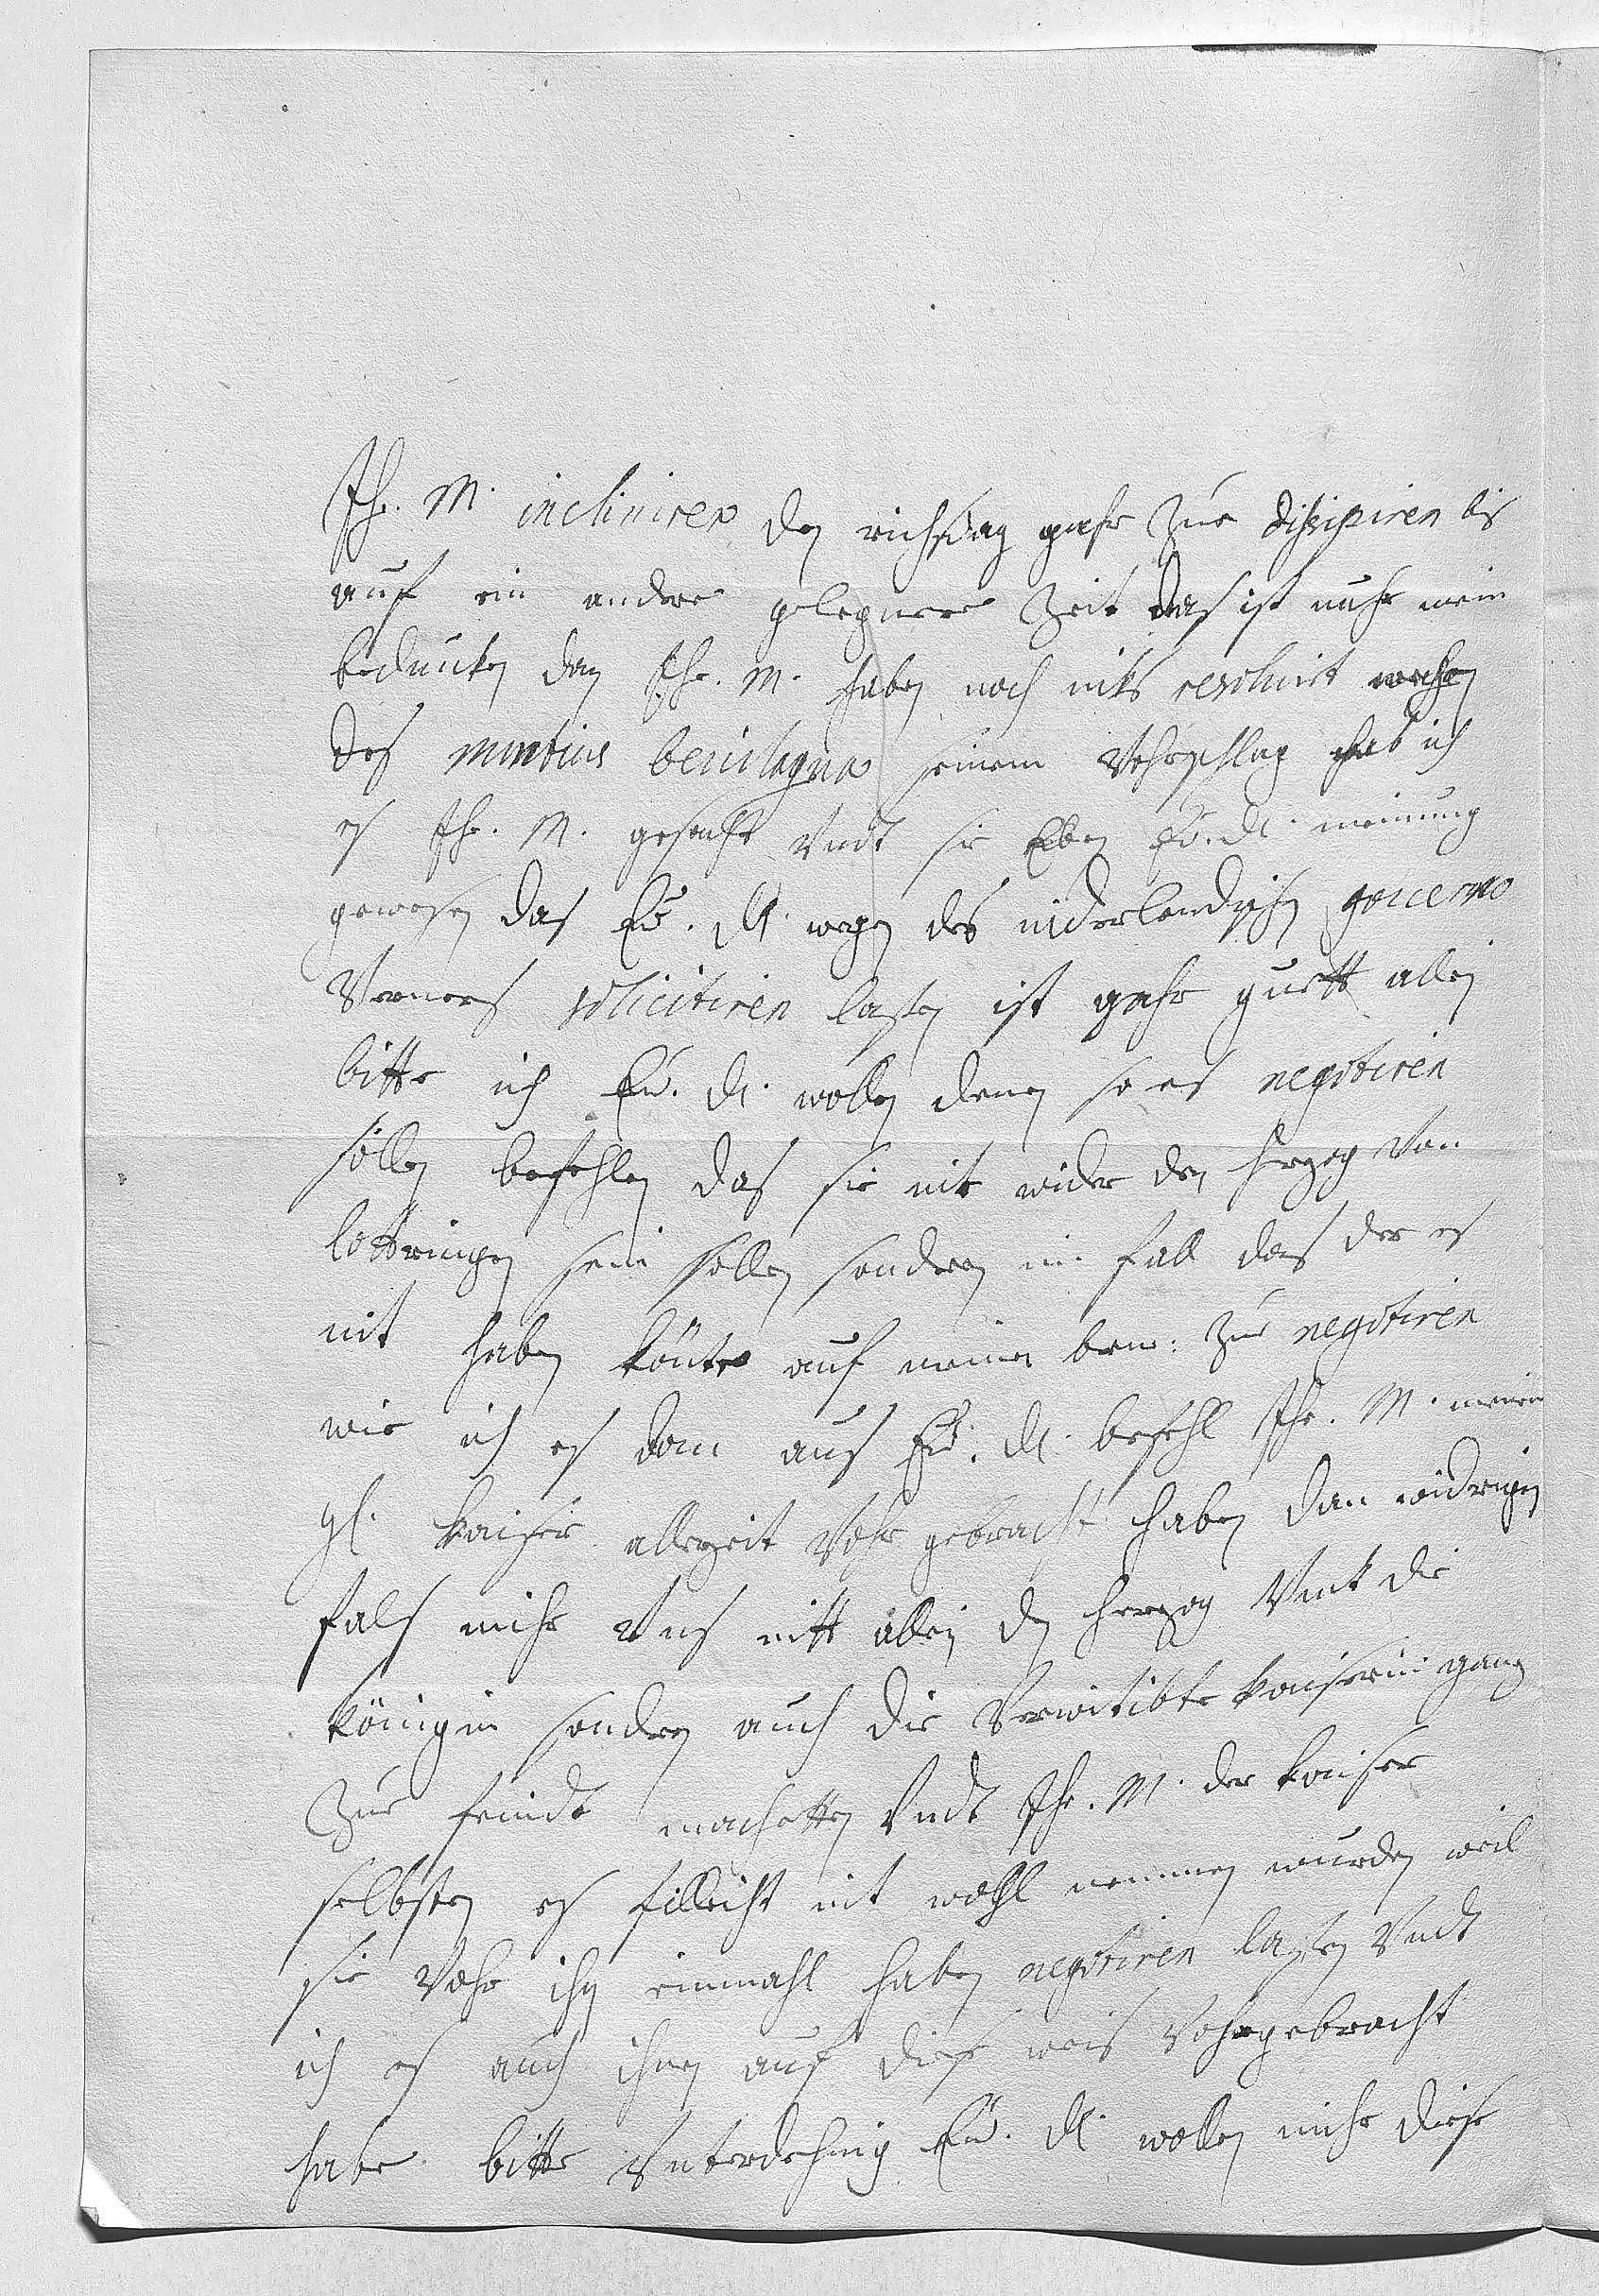 Ihr. M. incliniren den richsdag gahr zur dissipiren bis
auf ein andere gelegnere Zeit das ist nuhr mein
beduncken dan Ihr. M. haben noch nits resolvirt wegen
des nuntius bevilaqua seinem Vohrschlag hab ich
es Ihr. M. gesacht Undt sie Eben Eu. Dl. meinung
gewesen das Eu. Dl. wegen des niderlendischen governo
Verners soliciticiren lassen ist gahr guett allein
bitte ich Eu. Dl. wollen denen so es negotiren
sollen befehlen das sie nit wider den herzog von
lottringen sein sollen sondren im fall das der es
nit haben könte auf meinen brud: zu negotiren
wie ich es dan aus Eu. Dl. befehl Ihr. M. meinem
gl. Kaiser allezeit Vohr gebracht habe dan widrigen
fals mihr Uns nitt allein den herzog Unt die
königin sondren auch die Verwitibte Kaiserin ganz
Zur feindt machetten Undt Ihr. M. der Kaiser
selbsten es filleicht nit wohl nemmen wurden weil
sie Vohr ihn einmahl haben negotiren lassen Undt
ich es auch ihnen auf diese weis Vohrgebracht
habe bitte Unterdehnig Eu. Dl. wollen mihr diese